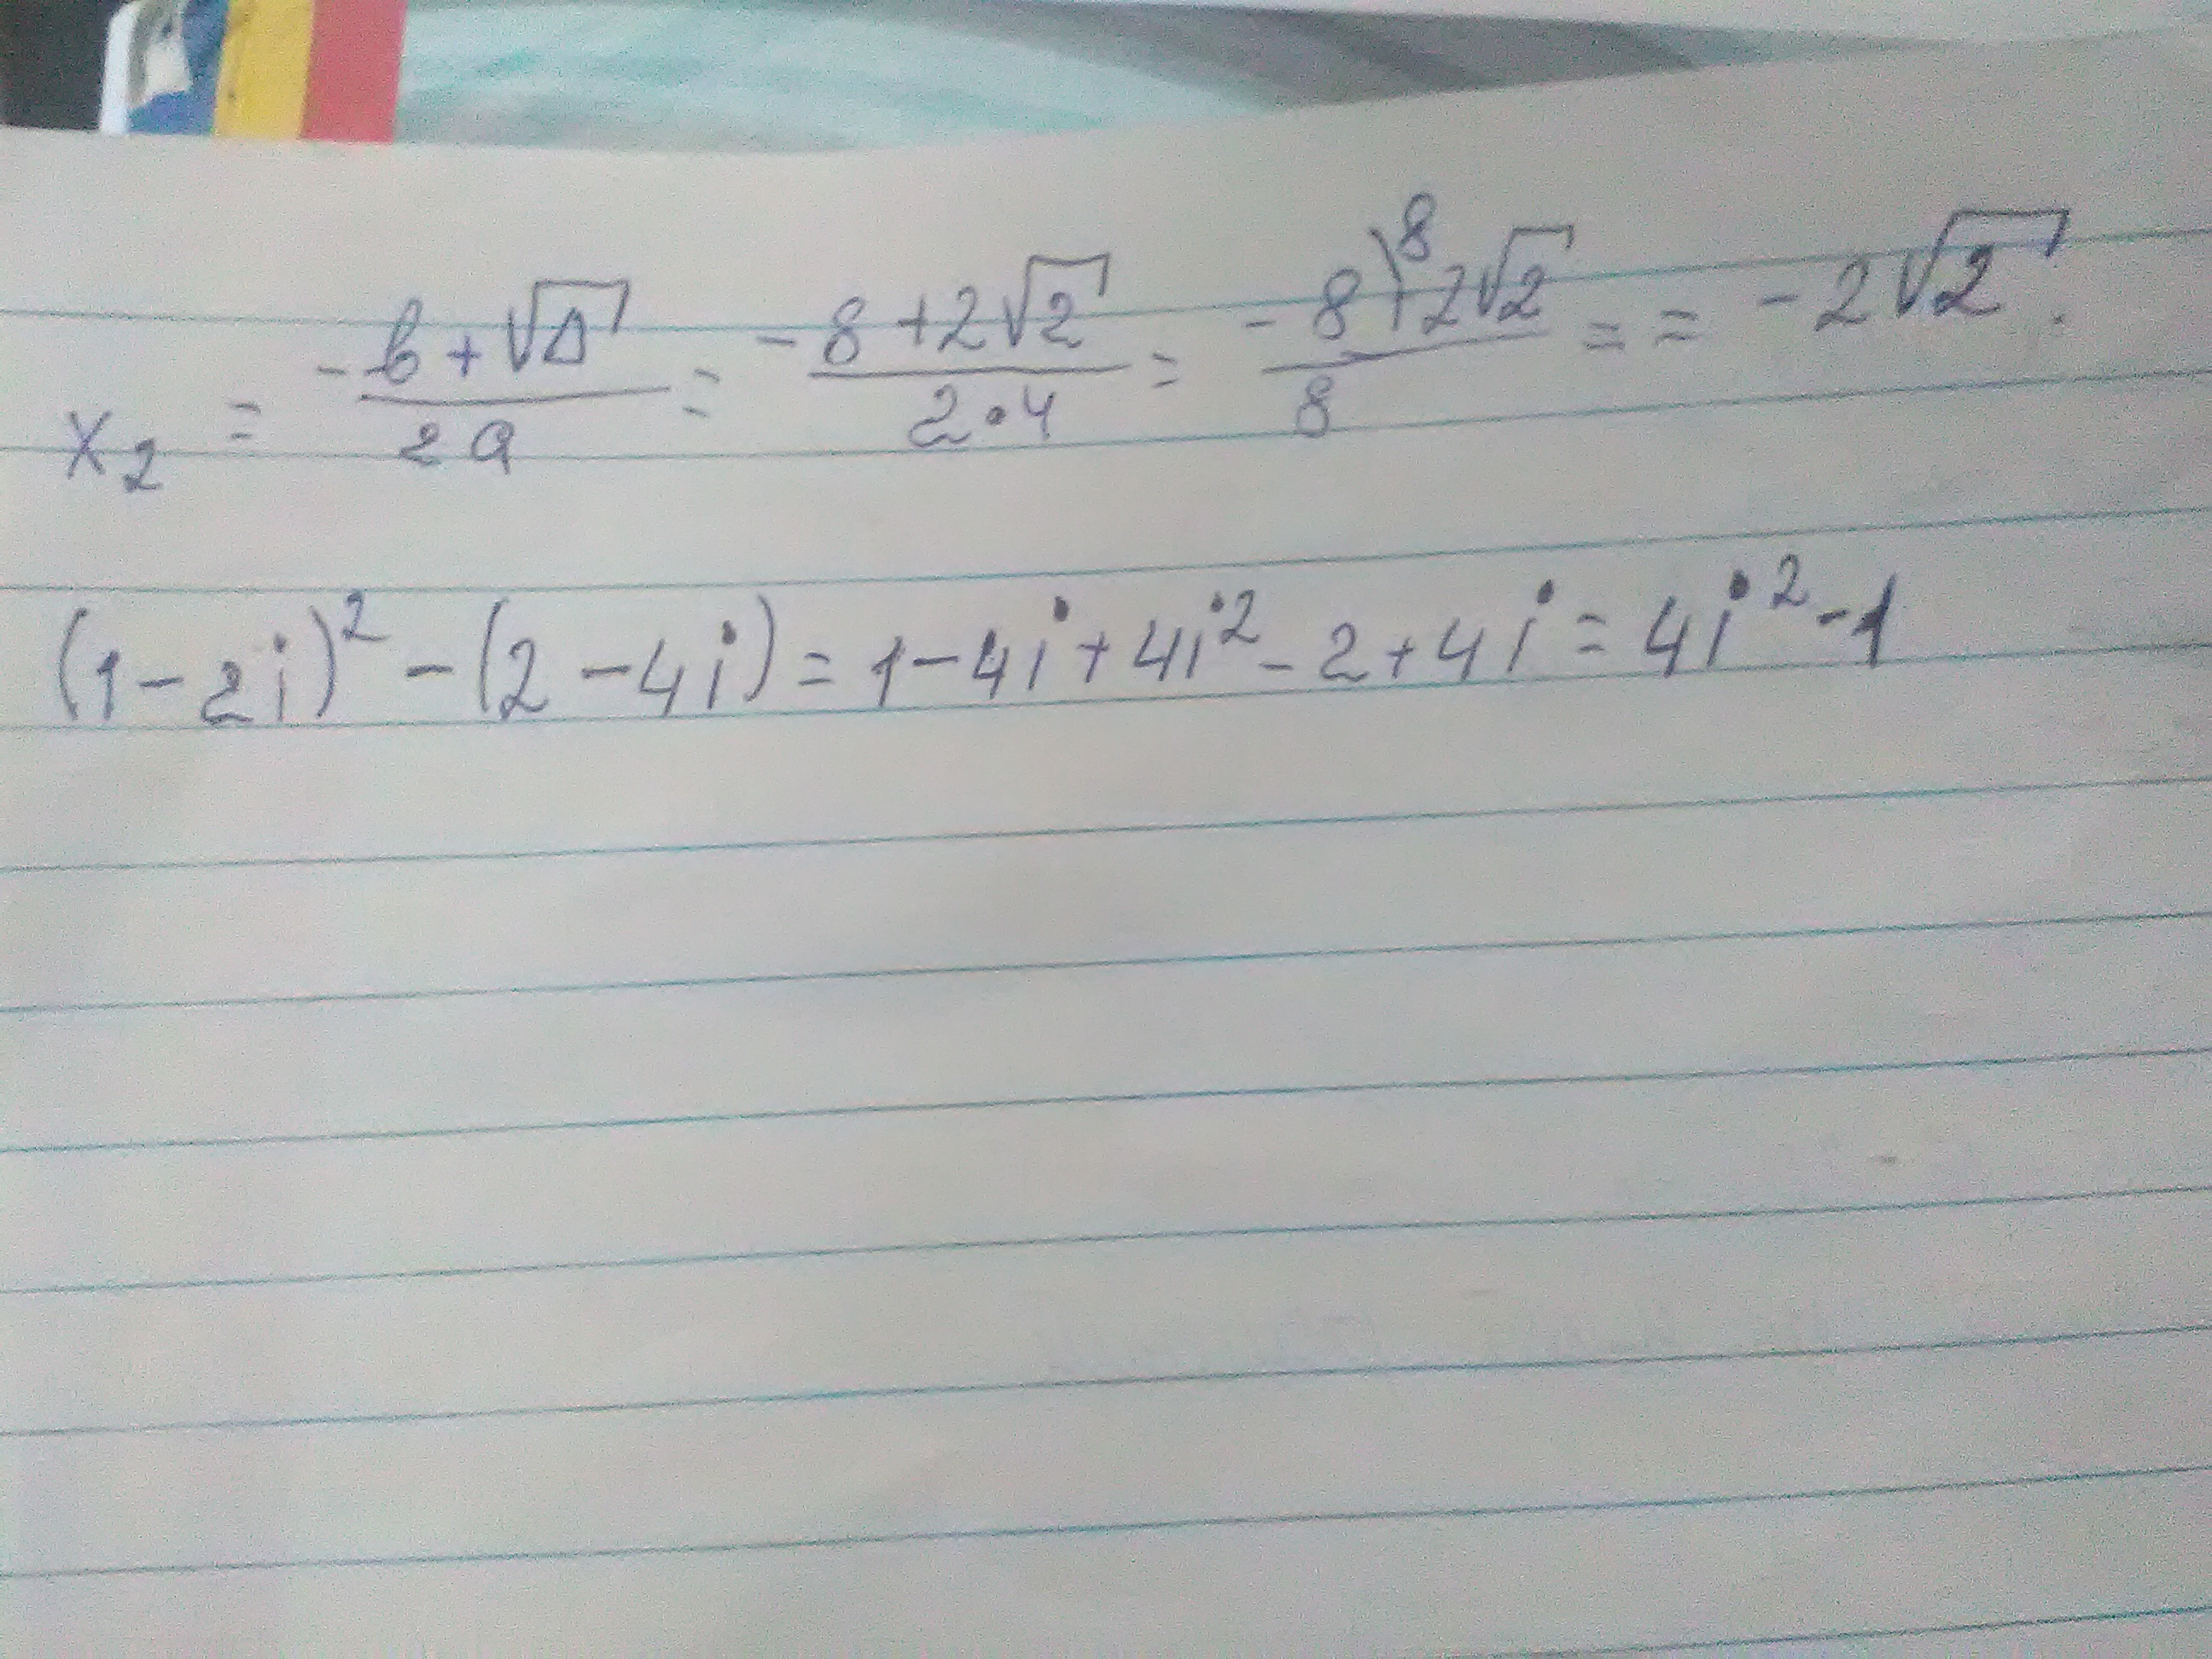 x₂ = (-b + √Δ)/(2a) = (-8 + 2√2)/(2•4) = (-8\⁸ + 2√2)/8 = = -2√2.
(1-2i)² - (2-4i) = 1-4i+4i²-2+4i = 4i²-1